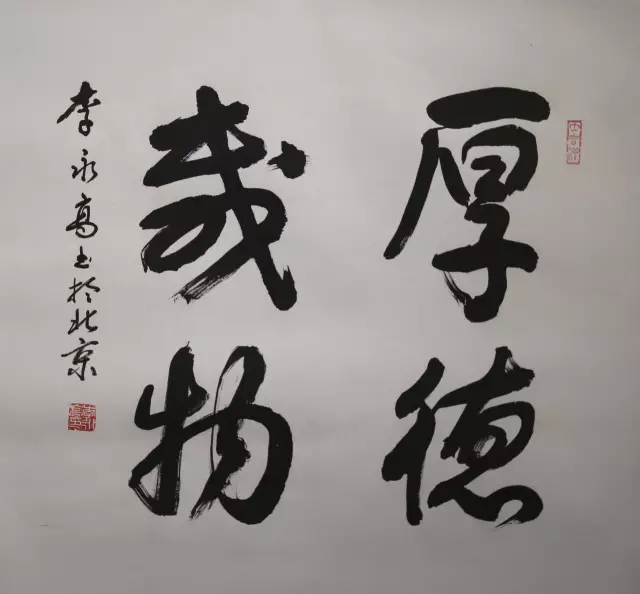 厚德
载物
李永高书於北京